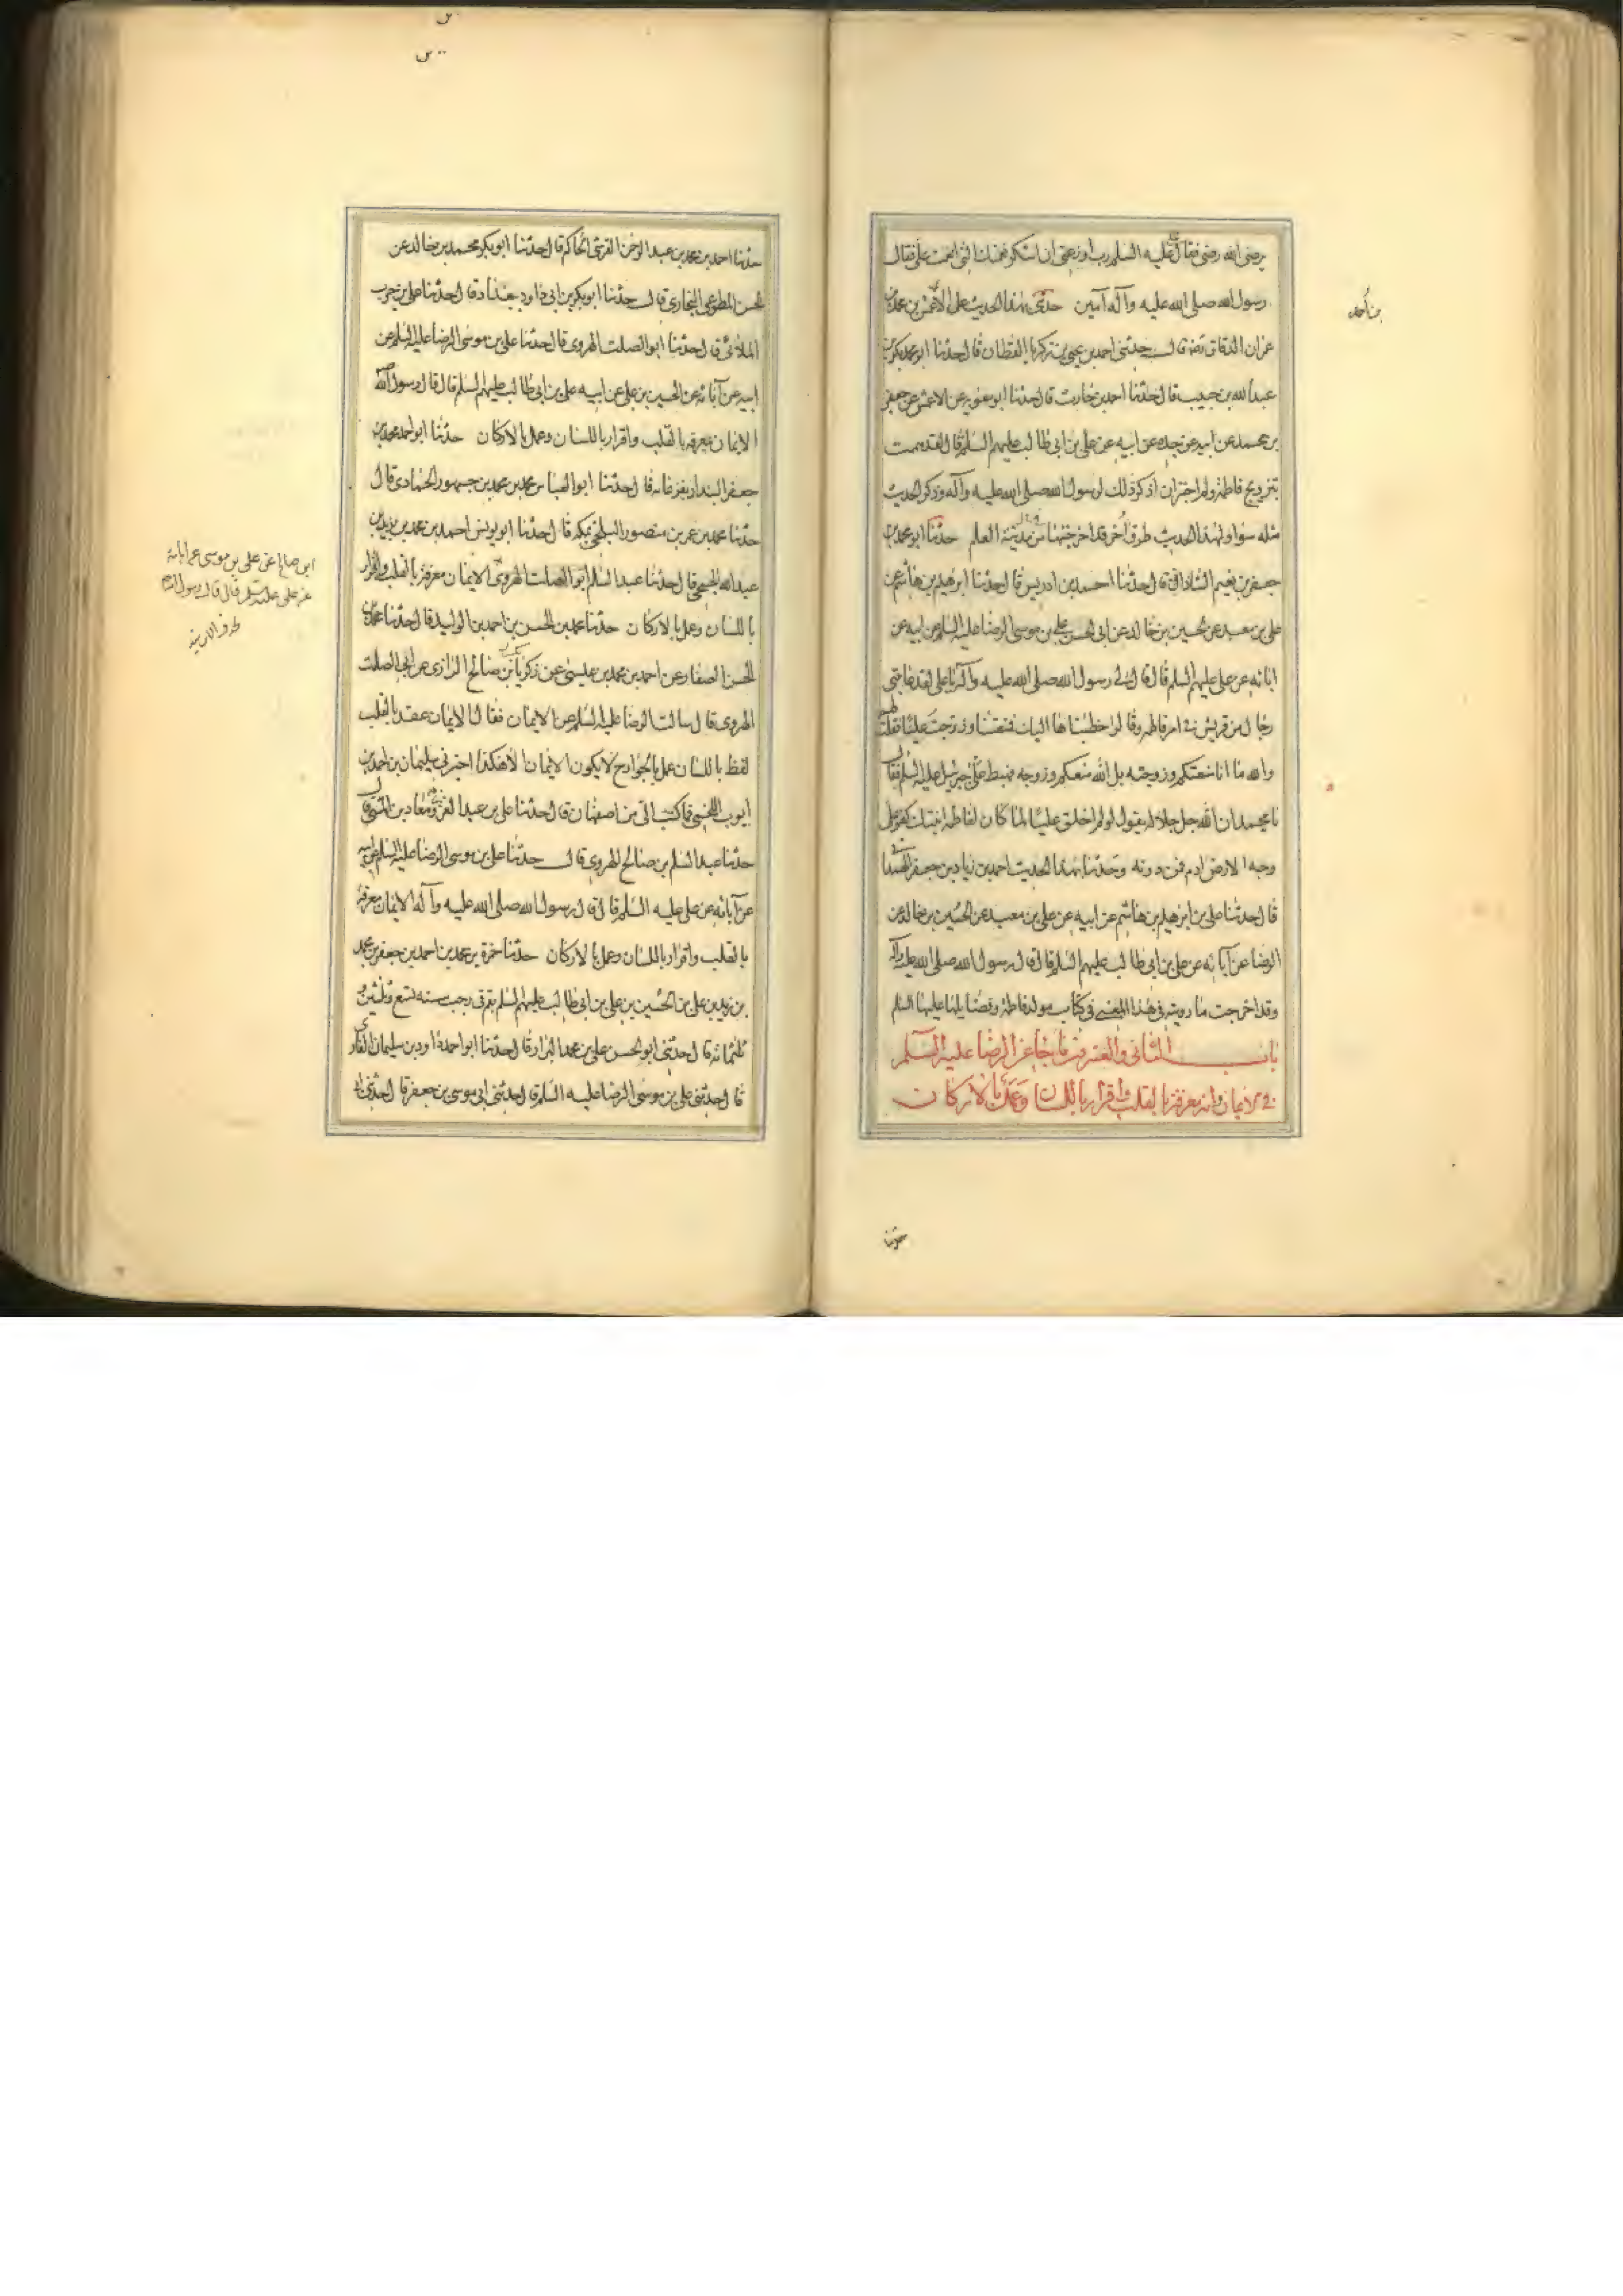 يرضى الله رضى فقال عليه السلم رب اوزعنى ان اشكر نعمتك التى انعمت على فقال
رسول الله صلى الله عليه وآله آمين حدثنى بهذا الحديث على الاعمش بن محمد بن
عمران الدقاق رضه قال حدثنى احمد بن يحيى بن زكريا القطان قال حدثنا ابو محمد بكر بن
عبد الله بن حبيب قال حدثنا احمد بن حارث قال حدثنا ابو معويه عن الاعمش عن جعفر
بن محمد عن ابيه عن جده عن ابيه عن على بن ابى طالب عليهم السلم قال لقد هممت
بتزويج فاطمة ولم اجتران اذكر ذلك لرسول الله صلى الله عليه وآله وذكر الحديث
مثله سواء ولهذا الحديث طرق أخر قد اخرجتها من مدينة العلم حدثنا ابو محمد بن
جعفر بن نعيم الشاذانى قال حدثنا احمد بن ادريس قال حدثنا ابرهيم بن هاشم عن
على بن معبد عن الحسين بن خالد عن ابى الحسن على بن موسى الرضا عليه السلم عن ابيه عن
ابائه عن على عليهم السلم قال قال لى رسول الله صلى الله عليه وآله يا على لقد عاتبنى
رجال من قريش فى امر فاطمه وقالوا خطبناها اليك فمنعتنا وزوجت عليا فقلت لهم
والله ما انا منعتكم وزوجته بل الله منعكم وزوجه فهبط على جبرئيل عليه السلم فقال
يا محمد ان الله جل جلاله يقول لو لم اخلق عليا لما كان لفاطمه ابنتك كفو على
وجه الارض ادم فمن دونه وحدثنا بهذا الحديث احمد بن زياد بن جعفر الهمدانى
قال حدثنا على بن ابرهيم بن هاشم عن ابيه عن على بن معبد عن الحسين بن خالد عن
الرضا عن آبائه عن على بن ابى طالب عليهم السلم قال قال رسول الله صلى الله عليه وآله
وقد اخرجت ما رويته فى هذا المعنى فى كتاب مولد فاطمة وفضايلها عليها السلم
باب الثانى والعشرون فيما جاء عن الرضا عليه السلم
فى الايمان وانه معرفة بالقلب واقرار باللسان وعمل بالاركان
حدثنا
حدثنا احمد بن محمد بن عبد الرحمن القرشى الحاكم قال حدثنا ابو بكر محمد بن خالد عن
الحسن المطوعى البخارى قال حدثنا ابو بكر بن ابى داود ببغداد قال حدثنا على بن حرب
الملائى قال حدثنا ابو الصلت الهروى قال حدثنا على بن موسى الرضا عليه السلم عن
ابيه عن آبائه عن الحسين بن على عن ابيه على بن ابى طالب عليهم السلم قال قال رسول الله
الايمان معرفه بالقلب واقرار باللسان وعمل بالاركان حدثنا ابو احمد محمد بن
جعفر البندار بفرغانه قال حدثنا ابو العباس محمد بن محمد بن جمهور الحمادى قال
حدثنا محمد بن عمر بن منصور البلخى بمكه قال حدثنا ابو يونس احمد بن محمد بن يزيد بن
عبد الله الجمحى قال حدثنا عبد السلم ابو الصلت الهروى الايمان معرفة بالقلب واقرار
باللسان وعمل بالاركان حدثنا محمد بن الحسن بن احمد بن الوليد قال حدثنا محمد بن
الحسن الصفار عن احمد بن محمد بن عيسى عن زكريا بن صالح الرازى عن ابى الصلت
الهروى قال سالت الرضا عليه السلم عن الايمان فقال الايمان عقد بالقلب
لفظ باللسان عمل بالجوارح لايكون الايمان الا هكذا اخبرنى سليمان بن احمد بن
ايوب اللخمى فيما كتب الى من اصفهان قال حدثنا على بن عبد العزيز ومعاذ بن المثنى قال
حدثنا عبد السلم بن صالح الهروى قال حدثنا على بن موسى الرضا عليه السلم عن ابيه
عن آبائه عن على عليه السلم قال قال رسول الله صلى الله عليه وآله الايمان معرفة
بالقلب واقرار باللسان وعمل بالاركان حدثنا حمزة بن محمد بن احمد بن جعفر بن محمد
بن زيد بن على بن الحسين بن على بن ابى طالب عليهم السلم بقم فى رجب سنه تسع وثلثين و
ثلثمائه قال حدثنى ابو الحسن على بن محمد البزار قال حدثنا ابو احمد داود بن سليمان الغازى
قال حدثنى على بن موسى الرضا عليه السلم قال حدثنى ابى موسى بن جعفر قال حدثنى ابى
ابن صالح عن على بن موسى عن ابائه
عن على عليه السلم قال قال رسول الله